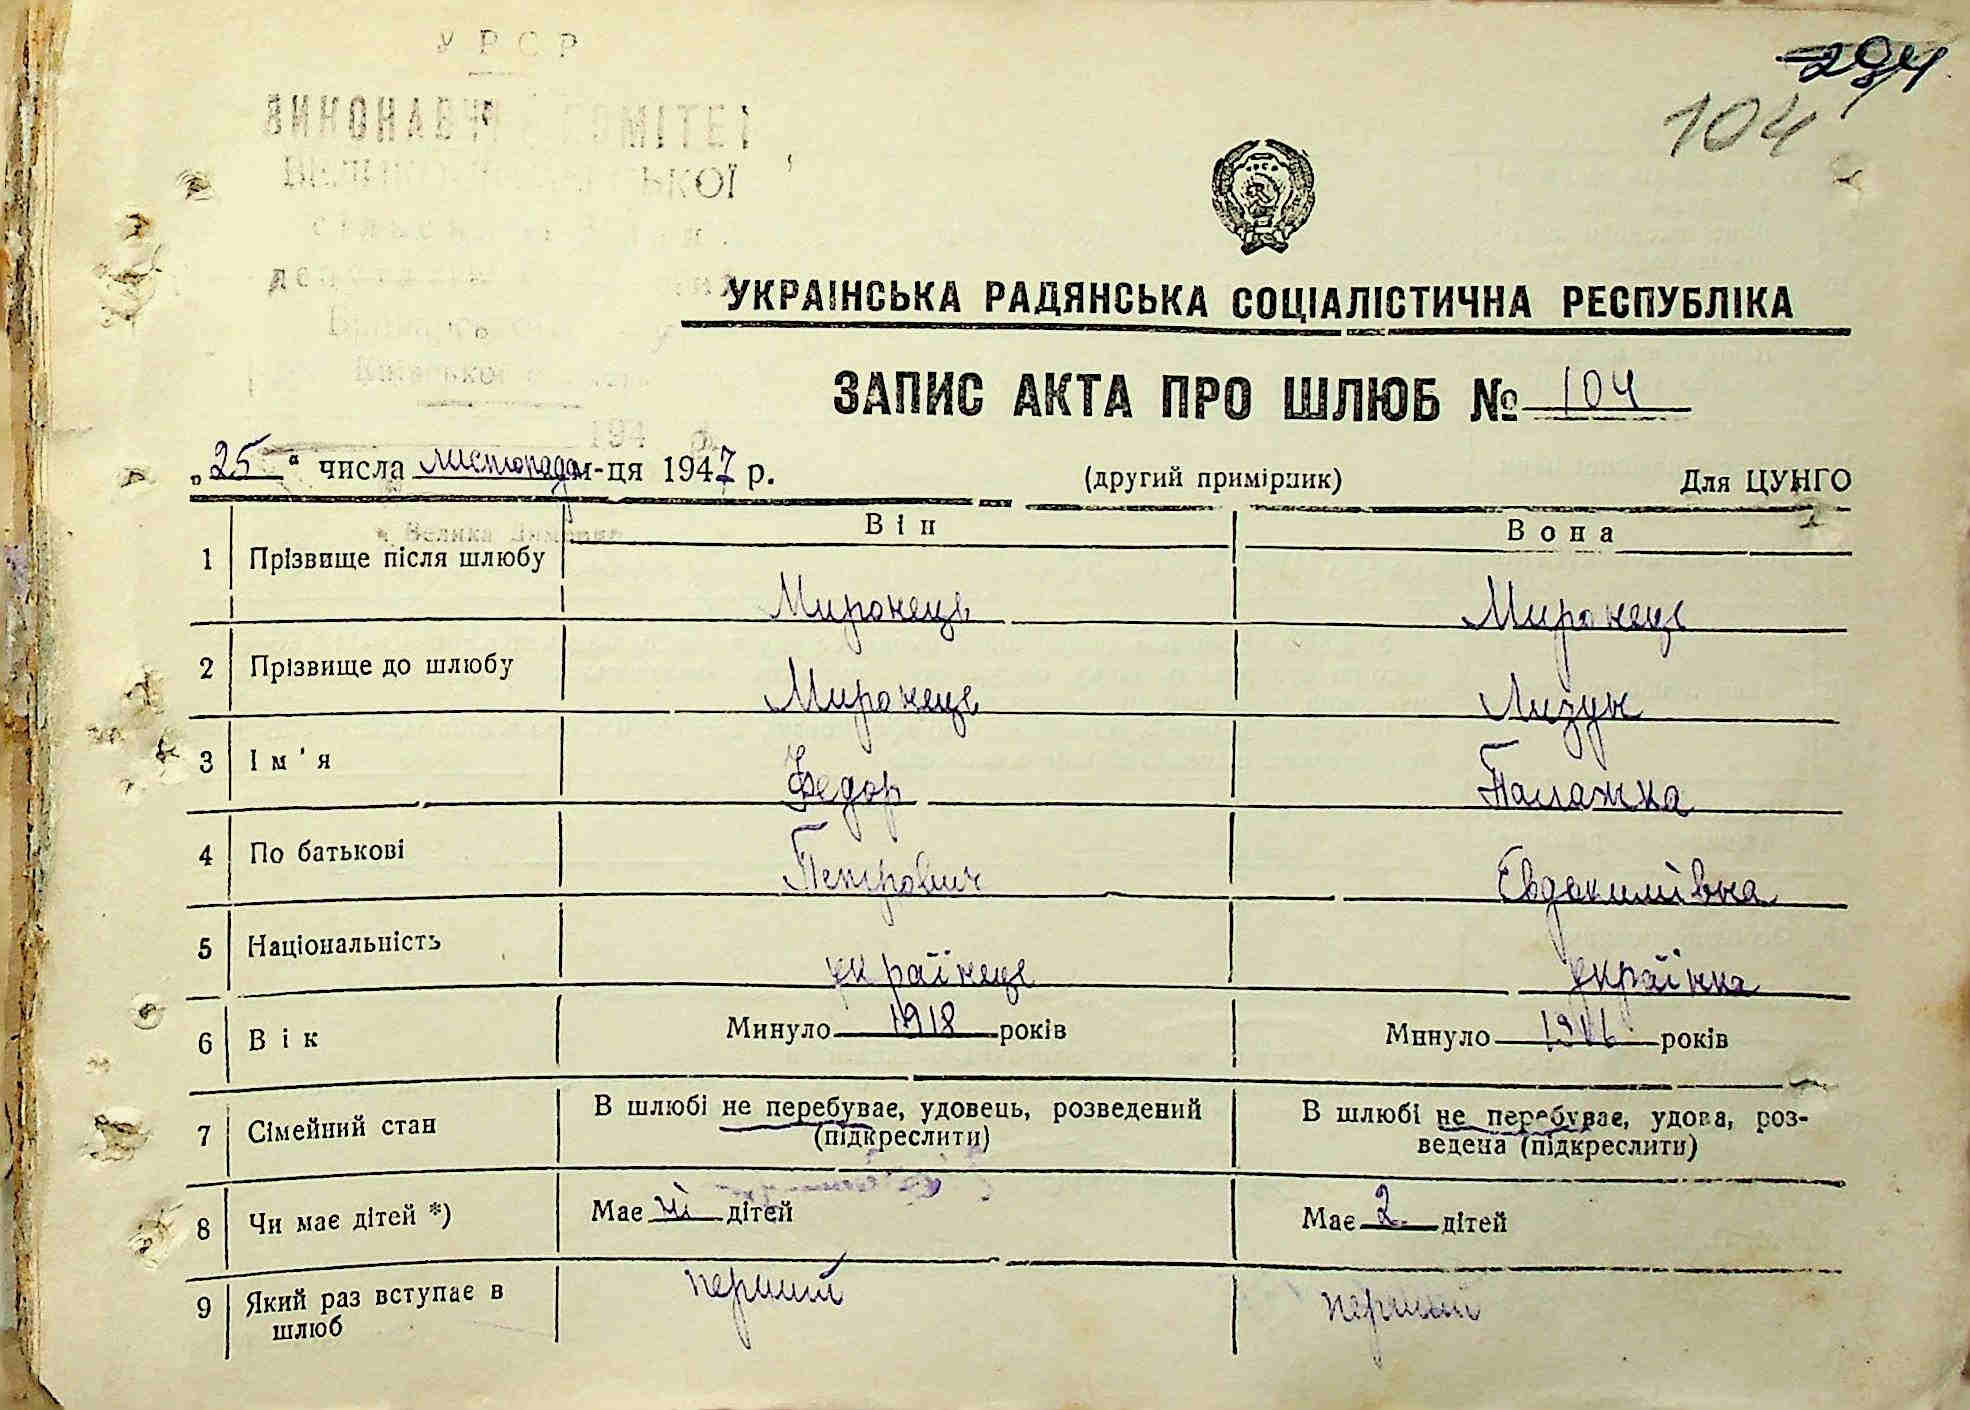 УРСР
294
104
УКРАЇНСЬКА РАДЯНСЬКА СОЦІАЛІСТИЧНА РЕСПУБЛІКА
ЗАПИС АКТА ПРО ШЛЮБ № 104
„25“ числа листопада м-ця 1947 р. (другий примірник) Для ЦУНГО
Він Вона
1 Прізвище після шлюбу Миронець Миронець
2 Прізвище до шлюбу Миронець Лизун
3 Ім'я Федор Палажка
4 По батькові Петрович Євдокимівна
5 Національність українець українка
6 Вік Минуло 1918 років Минуло 1916 років
7 Сімейний стан В шлюбі не перебуває, удовець, розведений (підкреслити) В шлюбі не перебуває, удова, роз-
ведена (підкреслити)
8 Чи має дітей *) Має ні дітей Має 2 дітей
9 Який раз вступає в шлюб перший перший